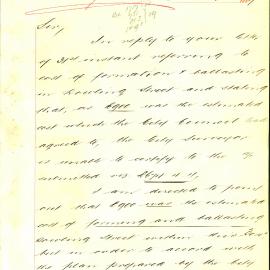 Sir,
In reply to your letter
of 31st instant referring to
cost of formation & ballasting
in Dowling Street and stating
that, as £900 was the estimated
cost which the City Council had
agreed to, the City Surveyor
is unable to certify to the
submitted viz
I am directed to point
out that £900 was the estimated
cost of forming and ballasting
Dowling Street
but in order to accord with
the plan prepared by the City